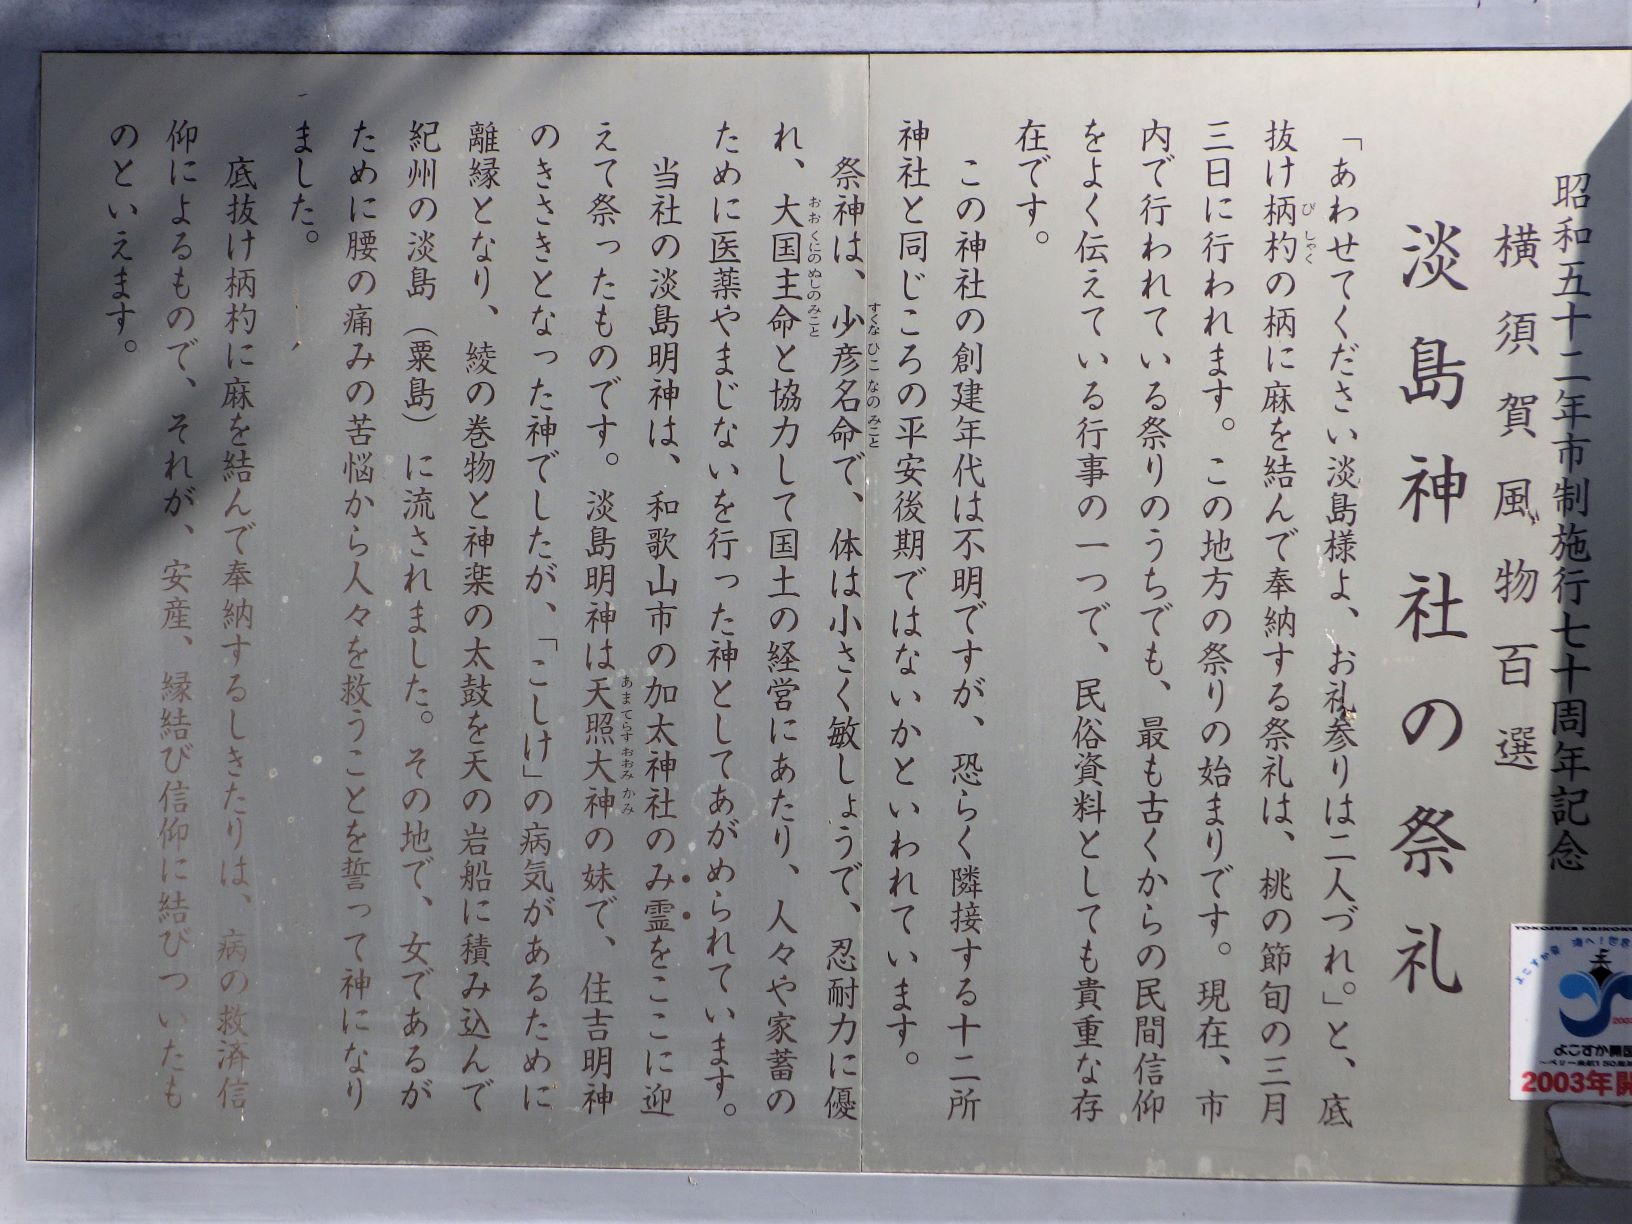 昭和五十二年市制施行七十周年記念
横須賀風物百選
淡島神社の祭礼
「あわせてください淡島様よ、お礼参りは二人づれ。」と、底
抜け柄杓の柄に麻を結んで奉納する祭礼は、桃の節旬の三月
びしゃく
三日に行われます。この地方の祭りの始まりです。現在、市
内で行われている祭りのうちでも、最も古くからの民間信仰
をよく伝えている行事の一つで、民俗資料としても貴重な存
在です。
この神社の創建年代は不明ですが、恐らく隣接する十二所
神社と同じころの平安後期ではないかといわれています。
祭神は、少彦名命で、体は小さく敏しょうで、忍耐力に優
すくなひこなのみこと
れ、大国主命と協力して国土の経営にあたり、人々や家蓄の
おおくにのぬしのみこと
ために医薬やまじないを行った神としてあがめられています。
当社の淡島明神は、和歌山市の加太神社のみ霊をここに迎
えて祭ったものです。淡島明神は天照大神の妹で、住吉明神
あまてらすおおみかみ
のきさきとなった神でしたが、「こしけ」の病気があるために
離縁となり、綾の巻物と神楽の太鼓を天の岩船に積み込んで
紀州の淡島（粟島）に流されました。その地で、女であるが
ために腰の痛みの苦悩から人々を救うことを誓って神になり
ました。
底抜け柄杓に麻を結んで奉納するしきたりは、病の救済信
仰によるもので、それが、安産、縁結び信仰に結びついたも
のといえます。
よこすか開国
2003年開